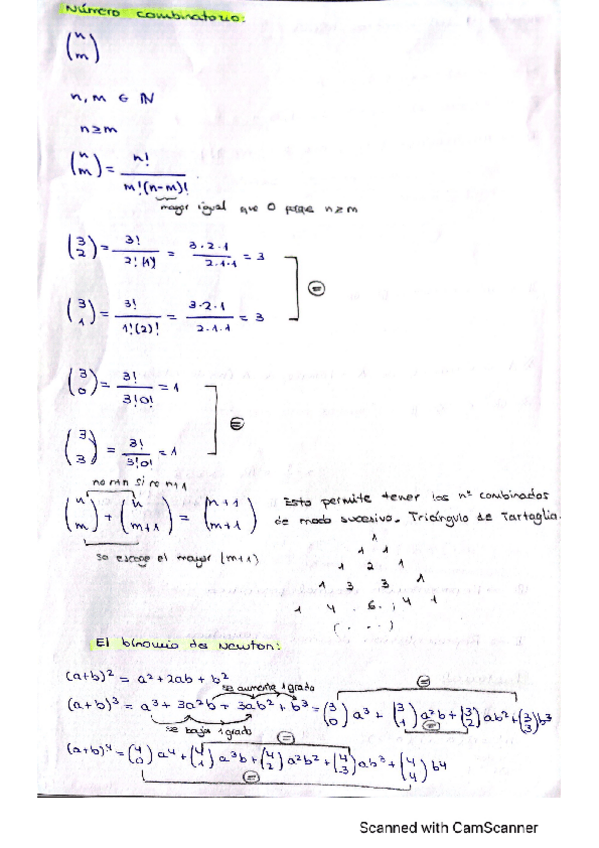 Número combinatorio:
(n m)
n, m ∈ ℕ
n ≥ m
(n m) = n! / m!(n-m)!
mayor igual que 0 porque n ≥ m
(3 2) = 3! / 2!(1)! = 3·2·1 / 2·1·1 = 3
(=)
(3 1) = 3! / 1!(2)! = 3·2·1 / 2·1·1 = 3
(3 0) = 3! / 3!0! = 1
(=)
(3 3) = 3! / 3!0! = 1
(n m) + (n m+1) = (n+1 m+1)
Esto permite tener los nº combinados
de modo sucesivo. Triángulo de Tartaglia.
se escoge el mayor (m+1)
1
1 1
1 2 1
1 3 3 1
1 4 6 4 1
(. . .)
El binomio de Newton:
(a+b)² = a² + 2ab + b²
se aumenta 1 grado
(=)
(a+b)³ = a³ + 3a²b + 3ab² + b³ = (3 0) a³ + (3 1) a²b + (3 2) ab² + (3 3) b³
se baja 1 grado
(=)
(=)
(a+b)⁴ = (4 0) a⁴ + (4 1) a³b + (4 2) a²b² + (4 3) ab³ + (4 4) b⁴
(=)
Scanned with CamScanner